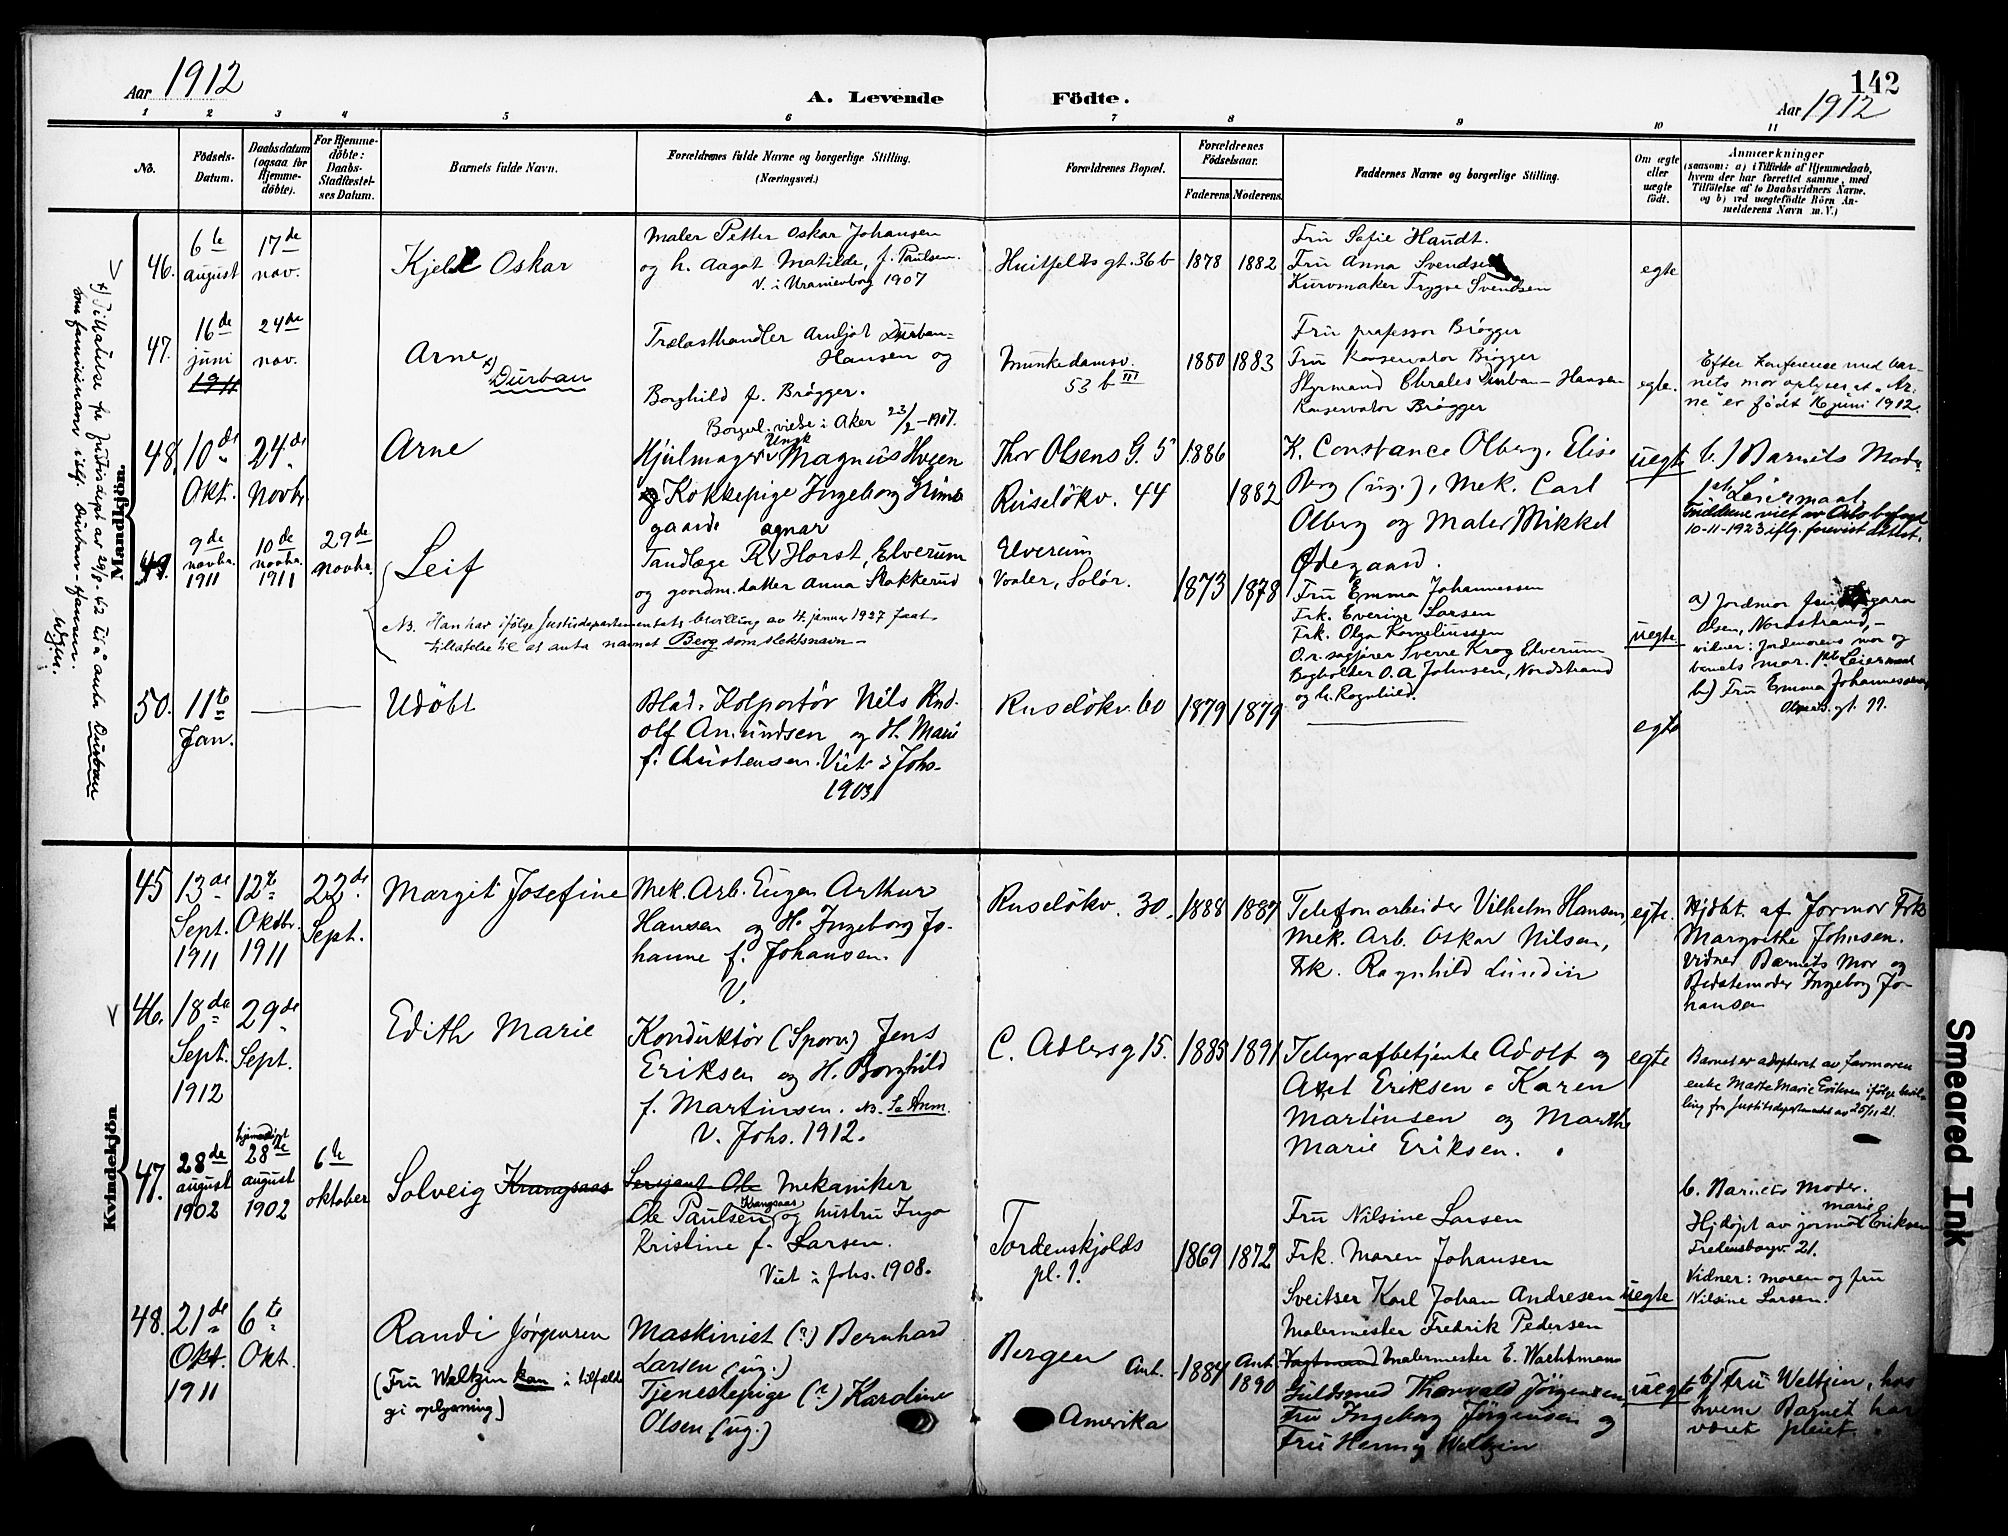 Aar 1912
A. Levende
Födte.
142
Aar 1912
1 2 3 4 5 6 7 8 9 10 11
No.
Födsels-
Datum.
Daabsdatum
(ogsaa for
Hjemme-
döbte).
For Hjemme-
döbte:
Daabs-
Stadfæstel-
ses Datum.
Barnets fulde Navn.
Forældrenes fulde Navne og borgerlige Stilling.
(Næringsvei.)
Forældrenes Bopæl.
Forældrenes
Födselsaar.
Faderens Moderens.
Faddernes Navne og borgerlige Stilling.
Om ægte
eller
uægte
födt.
Anmærkninger
(saasom: a) i Tilfælde af Hjemmedaab,
hvem der har forrettet samme, med
Tilföielse af to Daabsvidners Navne,
og b) ved uægtefödte Börn An-
melderens Navn m. V.)
Mandkjön.
x) Tillatelse fra Justisdept av 29/8-42 til å anta Durban
som familienavn istf. Durban-Hansen.
46.
6te
august
17de
nov.
Kjell Oskar
Maler Petter Oskar Johansen
og h. Aagot Matilde, f. Paulsen.
V. i Uranienborg 1907
Huitfeldts gt. 36 b
1878
1882
Fru Sofie Haudt.
Fru Anna Svendsen
Kurvmaker Trygve Svendsen
egte
47.
16de
juni
1911
24de
nov.
Arne x)
Durban
Trælasthandler Arnljot Durban-
Hansen og
Borghild f. Brøgger.
Borgerl. viede i Aker 23/2-1907.
Munkedamsv.
53 b III
1880
1883
Fru professor Brøgger
Fru Konservator Brøgger
Styrmand Charles Durban-Hansen
Konservator Brøgger
egte.
Efter konference med bar-
nets mor oplyses at "Ar-
ne" er født 16 juni 1912.
48.
10de
Okt.
24de
Novbr
Arne
Hjulmager Ungk Magnus Hogen
og Kokkepige Ingeborg Grims
gaard agnar
Thor Olsens G. 5
Ruseløkv. 44
1886
1882
K. Constance Olberg, Elise
Berg (ug.), Mek. Carl
Olberg og Maler Mikkel
Ødegaard.
uegte
b.) Barnets Moder
1ste Leiermaal
Foreldrene viet av Oslo byfogd
10-11-1923 iflg. forevist attest.
49.
9de
novbr.
1911
10de
novbr.
1911
29de
novbr.
Leif
Tandlæge R. Horst, Elverum
og gaardm.datter Anna Stokkerud
NB. Han har ifølge Justisdepartementets bevilling av 4. januar 1927 faat
tillatelse til at anta navnet Berg som slektsnavn –
Elverum
Vaaler, Solør.
1873
1878
Fru Emma Johannessen
Frk. Everine Larsen
Frk. Olga Korneliussen
O.r. sagfører Sverre Krog Elverum
Bogholder O. A. Johnsen, Nordstrand
og h. Ragnhild.
uegte
a) Jordmor
Olsen, Nordstrand, –
vidner: Jordmorens mor og
barnets mor. 1ste Leiermaal
b.) Fru Emma Johannessen
50.
11te
Jan.
Udøbt
Blad-Kolportør Nils Rud.
olf Amundsen og H. Marie
f. Christensen. Viet i Johs.
1903
Ruseløkv. 60
1879
1879
egte
Kvindekjön
45
13de
Sept.
1911
12te
Oktbr.
1911
22de
Sept.
Margit Josefine
Mek. Arb. Eugen Arthur
Hansen og H. Ingeborg Jo-
hanne f. Johansen.
V.
Ruseløkv. 30.
1888
1887
Telefonarbeider Vilhelm Hansen,
Mek. Arb. Oskar Nilsen,
Frk. Ragnhild Lundin
egte.
Hjdbt. af Jormor Frk
Margrethe Johnsen.
Vidner Barnets Mor og
Bedstemoder Ingeborg Jo-
hansen
46.
18de
Sept.
1912
29de
Sept.
Edith Marie
Konduktør (Sporv.) Jens
Eriksen og H. Borghild
f. Martinsen. NB. Se Anm.
V. Johs. 1912.
C. Adlersg 15.
1885
1891
Telegrafbetjente Adolf og
Axel Eriksen. Karen
Martinsen og Marthe
Marie Eriksen.
egte
Barnet er adopteret av farmoren
enke Marte Marie Eriksen ifølge bevil-
ling fra Justitsdepartementet av 25/11 21.
47.
28de
august
1902
hjemmedøpt
28de
august
1902
6te
oktober
Solveig Krangsaas
Sersjant Ole Mekaniker
Ole Paulsen Krangsaas og hustru Inga
Kristine f. Larsen.
Viet i Johs. 1908.
Tordenskjolds
pl. 1.
1869
1872
Fru Nilsine Larsen
Frk. Maren Johansen
Sveitser Karl Johan Andresen
Malermester Fredrik Pedersen
uegte
b. Barnets Moder.
Hjdøpt av jormor Marie Eriksen
Fredensborgv. 21.
Vidner: moren og fru
Nilsine Larsen.
48.
21de
Okt.
1911
6te
Okt.
Randi Jørgensen
(Fru Weltzin kan i tilfælde
gi oplysning)
Maskinist (?) Bernhard
Larsen (ug.)
Tjenestepige (?) Karoline
Olsen (ug.)
Bergen
Amerika
Ant. 1884
Ant. 1890
Malermester E. Wachtmann
Guldsmed Thorvald Jörgensen
Fru Ingeborg Jørgensen og
Fru Henny Weltzin
uegte
b) Fru Weltzin, hos
hvem Barnet har
været pleiet.
Smeared Ink